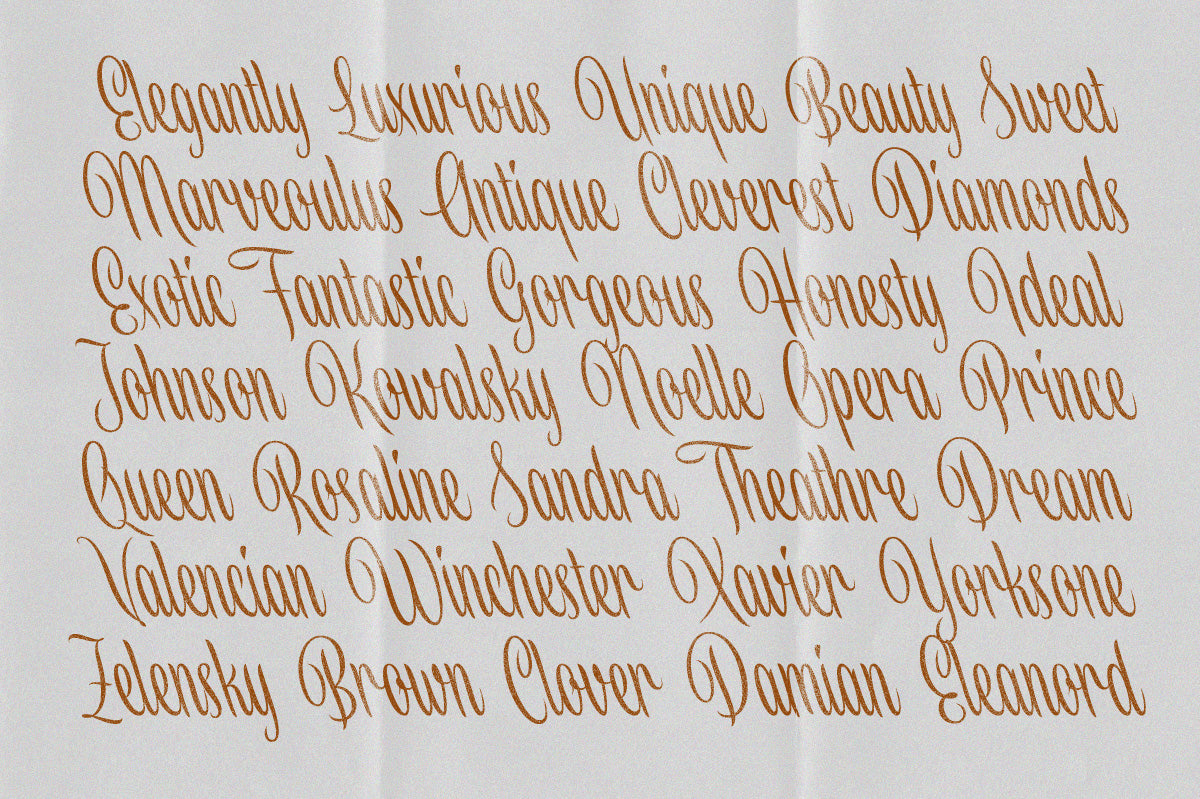 Elegantly Luxurious Unique Beauty Sweet
Marveoulus Antique Cleverest Diamonds
Exotic Fantastic Gorgeous Honesty Ideal
Johnson Kowalsky Noelle Opera Prince
Queen Rosaline Sandra Theathre Dream
Valencian Winchester Xavier Yorksone
Zelensky Brown Clover Damian Eleanord